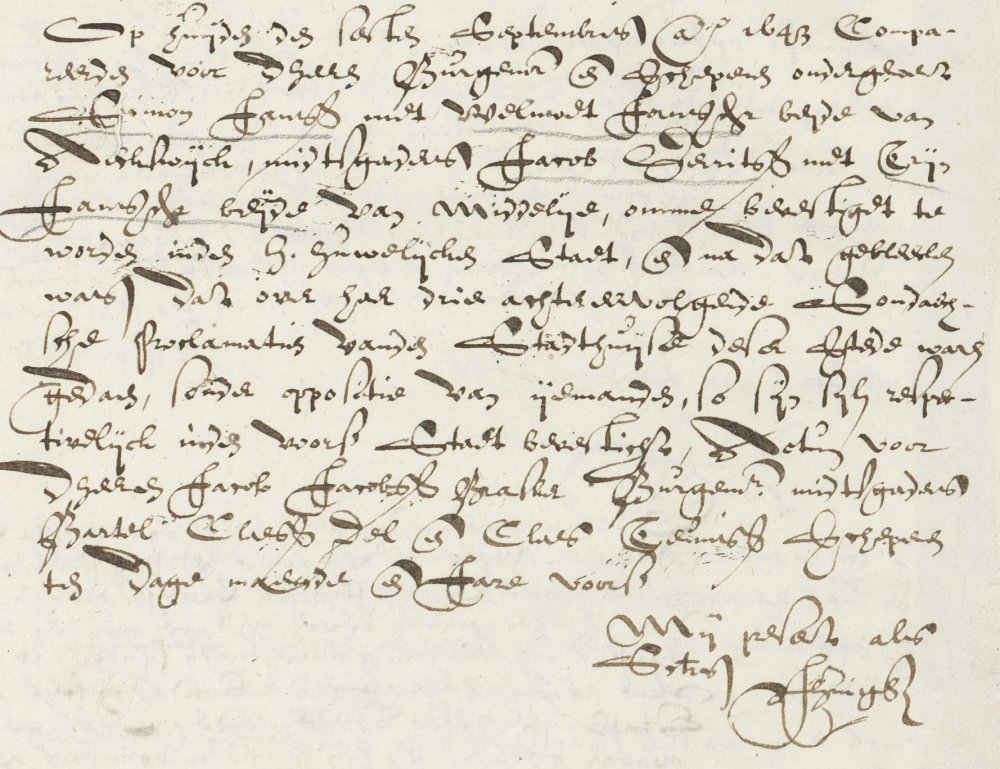 Op huijden den sesten Septembris aº 1643 Compa-
reerden voor dheeren Burgemrs en Schepenen ondergenoemt
Sijmon Jansz met Welmoet Jans dr beyde van
Beckswijck, midtsgaders Jacob Gerritsz met Trijn
Jans dr beijde van Middelije, omme bevestiget te
worden inden H. Huwelijcken Staet, en na dat gebleecken
was dat over haer drie achtereenvolgende Sondaech-
sche Proclamatien vanden Stadthuijse deser Stede waren
gedaen, sonder oppositie van ijemanden, so sijn sijl respec-
tivelijck inden voorsz Staet bevesticht, Actum voor
dheeren Jacob Jacobsz Burgemr. midtsgaders
Bartel Claesz Del en Claes Teunisz Schepenen
ten dage maende en Jare voorsz
Mij present als
Secrts